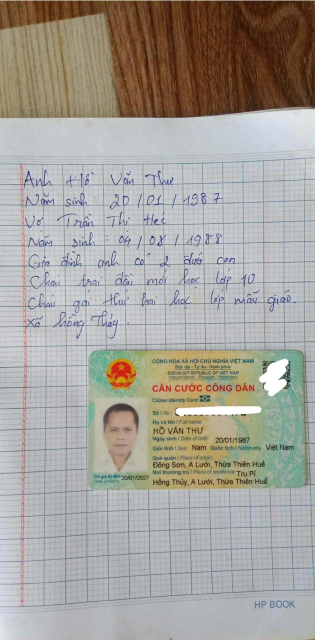 Anh Hồ Văn Thư
Năm sinh: 20/01/1987
Vợ Trần Thị Héc
Năm sinh: 04/08/1988
Gia đình anh có 2 đứa con
Cháu trai đầu mới học lớp 10
Cháu gái thứ hai học lớp mẫu giáo.
Xã hồng Thủy.
CỘNG HÒA XÃ HỘI CHỦ NGHĨA VIỆT NAM
Độc lập - Tự do - Hạnh phúc
SOCIALIST REPUBLIC OF VIET NAM
CĂN CƯỚC CÔNG DÂN
Citizen Identity Card
Số / No.:
Họ và tên / Full name:
HỒ VĂN THƯ
Ngày sinh / Date of birth: 20/01/1987
Giới tính / Sex: Nam Quốc tịch / Nationality: Việt Nam
Quê quán / Place of origin:
Đông Sơn, A Lưới, Thừa Thiên Huế
Nơi thường trú / Place of residence: Tru Pỉ
Hồng Thủy, A Lưới, Thừa Thiên Huế
20/01/2027
HP BOOK